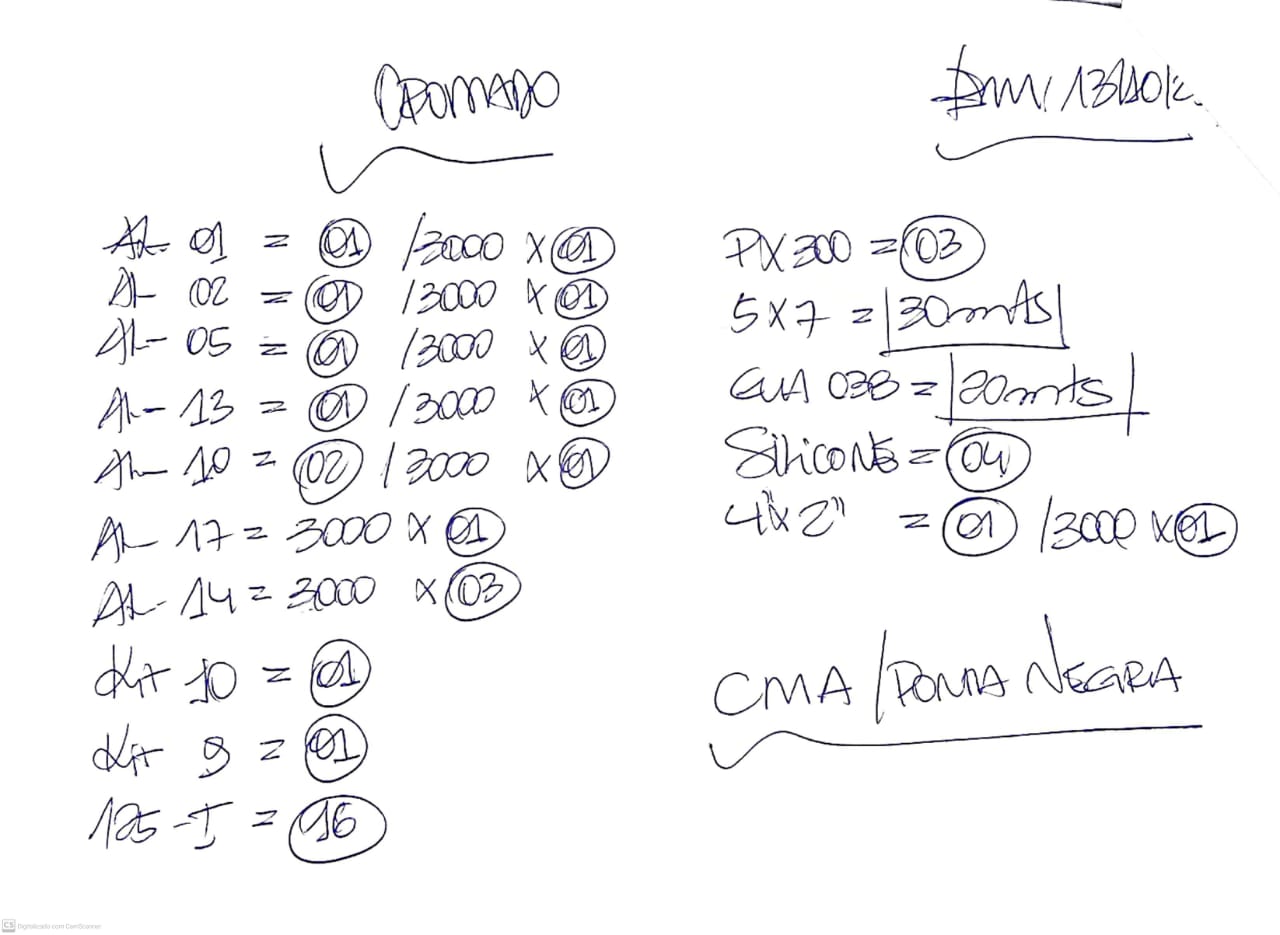 CROMADO
AL- 01 = 01 /3000 X 01
AL- 02 = 01 /3000 X 01
AL- 05 = 01 /3000 X 01
AL- 13 = 01 /3000 X 01
AL- 10 = 02 /3000 X 01
AL- 17 = 3000 X 01
AL- 14 = 3000 X 03
Kit 10 = 01
Kit 9 = 01
125-I = 16
PX300 = 03
5X7 = 30mts
GUA 038 = 20mts
SiliCONES = 04
4"x2" = 01 /3000 X 01
CMA/PONTA NEGRA
CS Digitalizado com CamScanner